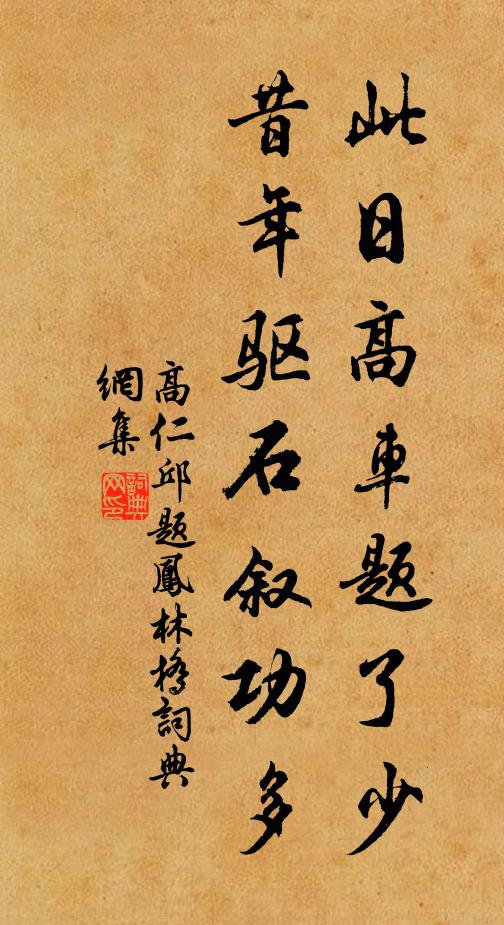 此日高車题了少
昔年驱石叙功多
高仁邱题鳳林橋詞典
網集
詞典
网印